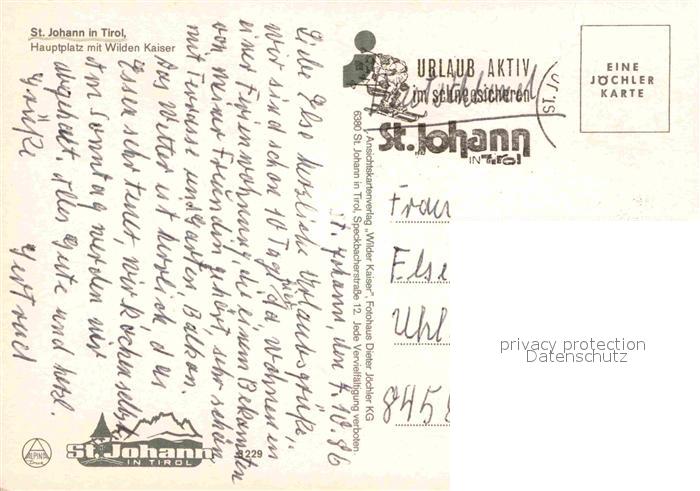 St. Johann in Tirol,
Hauptplatz mit Wilden Kaiser
St. Johann, den 7.10.86
Liebe Else herzliche Urlaubsgrüße.
Wir sind schon 10 Tage hier, da wohnen in
einer Ferienwohnung, die einem Bekannten
von meiner Freundin gehört, sehr schön
mit Terrasse und Garten Balkon.
Das Wetter ist herrlich, das
Essen sehr teuer, wir kochen selbst
Am Sonntag werden wir
abgeholt. Alles Gute und herzl.
Grüße Gertraud
Ansichtskartenverlag „Wilder Kaiser", Fotohaus Dieter Jöchler KG
6380 St. Johann in Tirol, Speckbacherstraße 12. Jede Vervielfältigung verboten.
URLAUB AKTIV
im schneesicheren
St. Johann
IN TIROL
EINE
JÖCHLER
KARTE
Frau
Else
Uhl
845
privacy protection
Datenschutz
ALPINA
Druck
St. Johann
IN TIROL
229